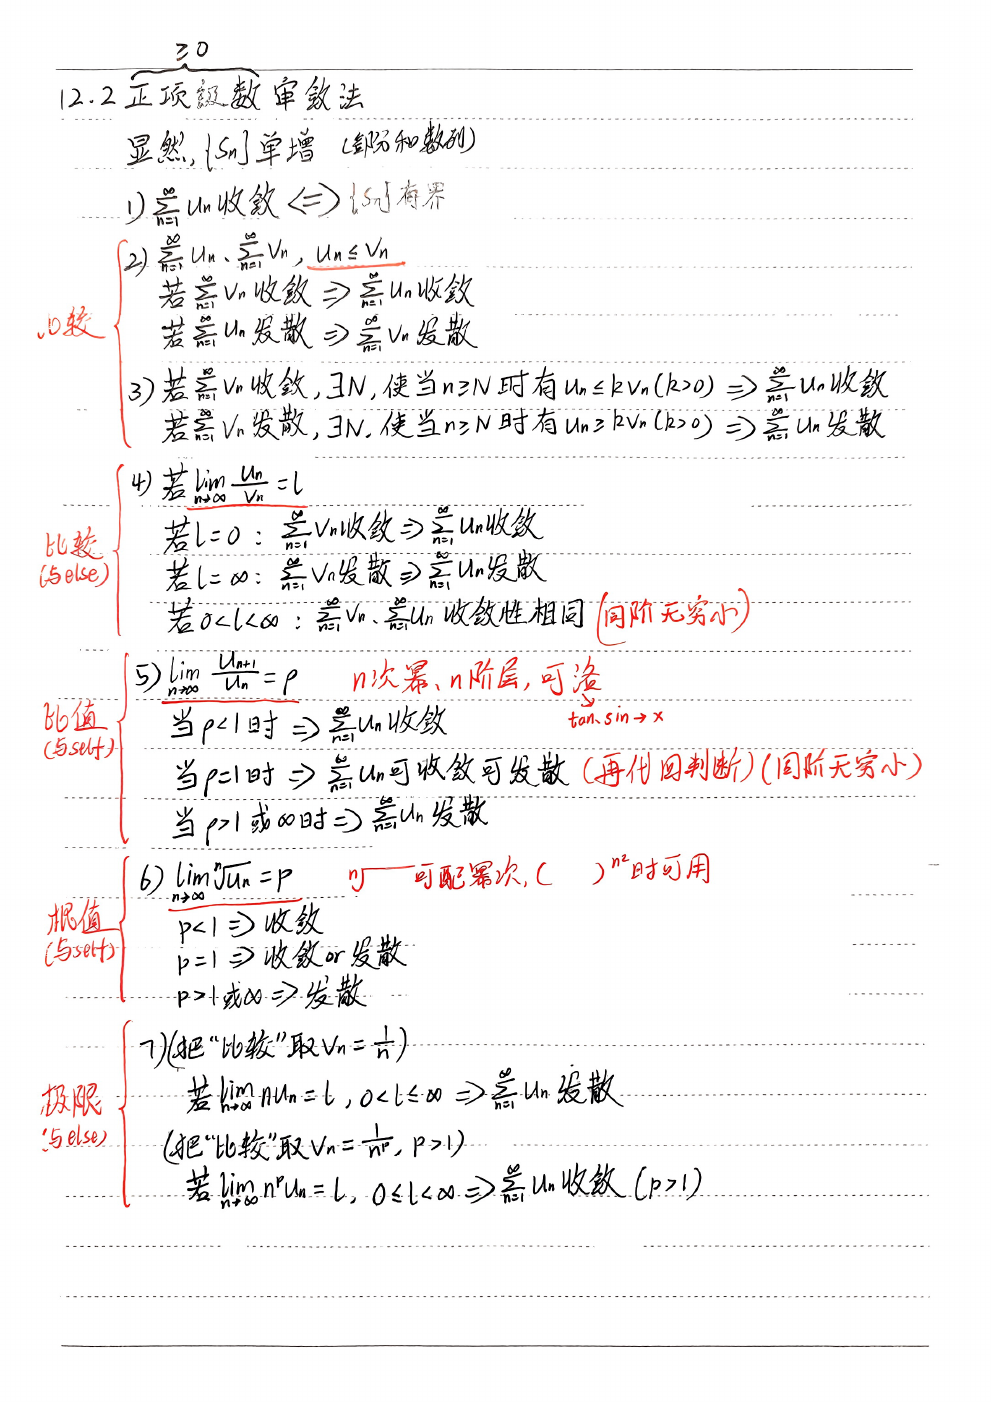 ≥0
12.2 正项级数审敛法
显然,{Sn}单增 (部分和数列)
1) ∑_{n=1}^∞ Un收敛 <=> {Sn}有界
2) ∑_{n=1}^∞ Un、∑_{n=1}^∞ Vn, Un≤Vn
若∑_{n=1}^∞ Vn收敛 => ∑_{n=1}^∞ Un收敛
比较
若∑_{n=1}^∞ Un发散 => ∑_{n=1}^∞ Vn发散
3) 若∑_{n=1}^∞ Vn收敛,∃N,使当n≥N时有Un≤kVn(k>0) => ∑_{n=1}^∞ Un收敛
若∑_{n=1}^∞ Vn发散,∃N,使当n≥N时有Un≥kVn(k>0) => ∑_{n=1}^∞ Un发散
4) 若lim_{n→∞} Un/Vn = l
若l=0: ∑_{n=1}^∞ Vn收敛 => ∑_{n=1}^∞ Un收敛
比较
(与else)
若l=∞: ∑_{n=1}^∞ Vn发散 => ∑_{n=1}^∞ Un发散
若0<l<∞: ∑_{n=1}^∞ Vn、∑_{n=1}^∞ Un 收敛性相同 (同阶无穷小)
5) lim_{n→∞} U_{n+1}/Un = ρ n次幂、n阶层,可洛
tan、sin→x
比值
(与self)
当ρ<1时 => ∑_{n=1}^∞ Un收敛
当ρ=1时 => ∑_{n=1}^∞ Un可收敛可发散 (再代回判断)(同阶无穷小)
当ρ>1或∞时 => ∑_{n=1}^∞ Un发散
6) lim_{n→∞} ⁿ√Un = ρ ⁿ√ 可配幂次,( )^{n²}时可用
根值
(与self)
ρ<1 => 收敛
ρ=1 => 收敛or发散
ρ>1或∞ => 发散
7) (把“比较”取Vn=1/n)
极限
(与else)
若lim_{n→∞} nUn=l, 0<l≤∞ => ∑_{n=1}^∞ Un发散
(把“比较”取Vn=1/n^p, p>1)
若lim_{n→∞} n^p Un=l, 0≤l<∞ => ∑_{n=1}^∞ Un收敛 (p>1)